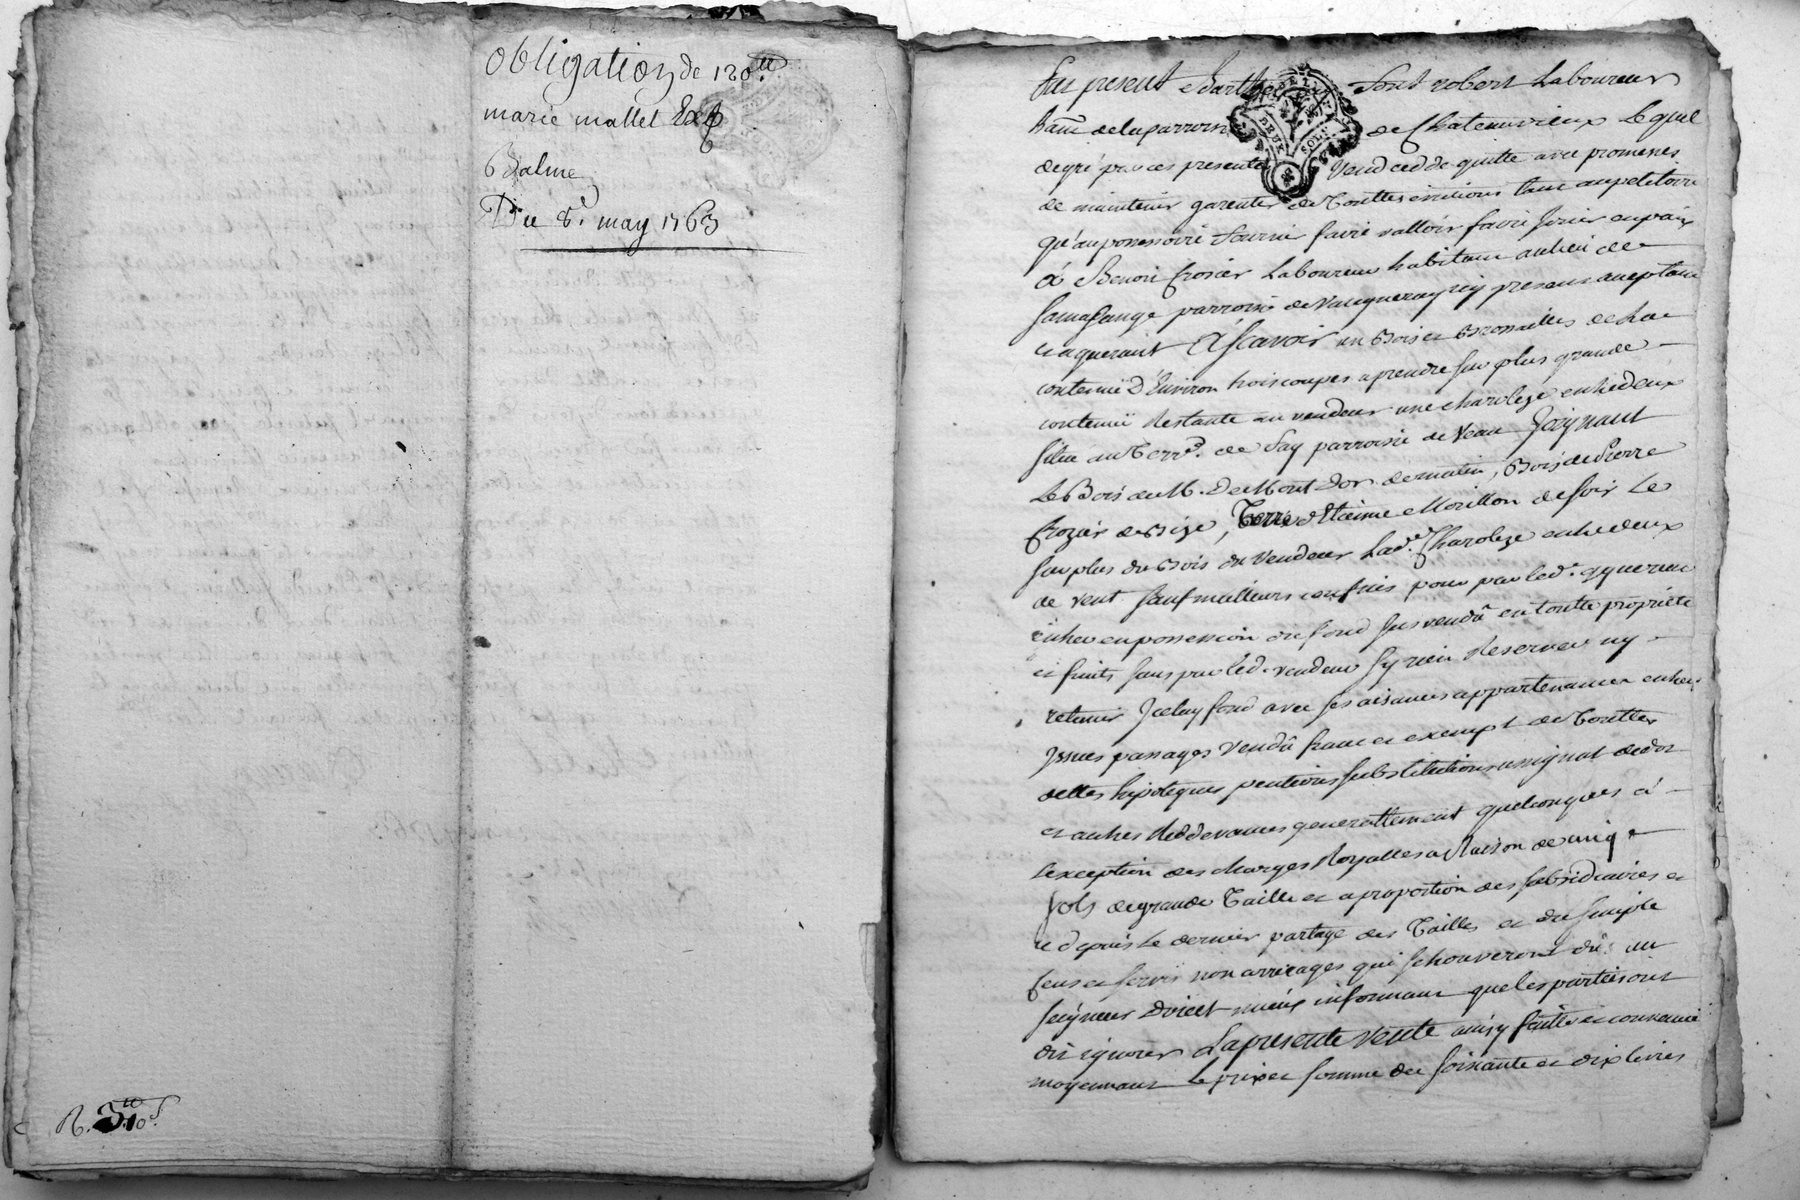 obligation de 120ᵗᵗ
marie mallet
Balme
Du 8. may 1763
R. 3ᵗᵗ 10ˢ
fut present Barthe robert Laboureur
de la parroisse de Chateauvieux Lequel
de gré par ces presentes vend cedde quitte avec promesses
de maintenir garentir de touttes evictions tant au petitoire
qu'au possessoire fournir faire valloir faire jouir en paix
à Benoit Crosier Laboureur habitant au lieu de
parroisse de Vaugneray icy present acceptant
et aquerant A Scavoir un Bois et Brossailles de la
contenuë D'Environ trois coupes a prendre sur plus grande
contenuë Restante au vendeur une charoleze entredeux
situé au Terr.ᵉ de Fay parroisse de Yeau Joignant
Le Bois de M. De Mont Dor de matin, Bois de Pierre
Crozier de Bize, Terre d'Etienne Morillon de soir Le
surplus du Bois du vendeur Lad.ᵉ Charoleze entredeux
de vent sauf meilleurs confins pour par led. aquereur
entrer en possession du fond sus vendû en toutte proprieté
et fruits sans par led. vendeur s'y rien Reserver ny
retenir Jceluy fond avec ses aisances appartenances entrées
Jssues passages vendû franc et exempt de touttes
dettes hipoteques pentions substitutions assignat de dot
et autres Reddevances generallement quelconques à
Lexception des charges Royalles a Raison de cinq
sols de grande Taille et a proportion des subsidiaires et
ce depuis Le dernier partage des Tailles et du simple
cens et servis non arrerages qui se trouveront dûs au
seigneur Direct mieux informant que les parties ont
dit ignorer La presente Vente ainsy faitte et convenuë
moyennant Le prix et somme de soixante et dix livres